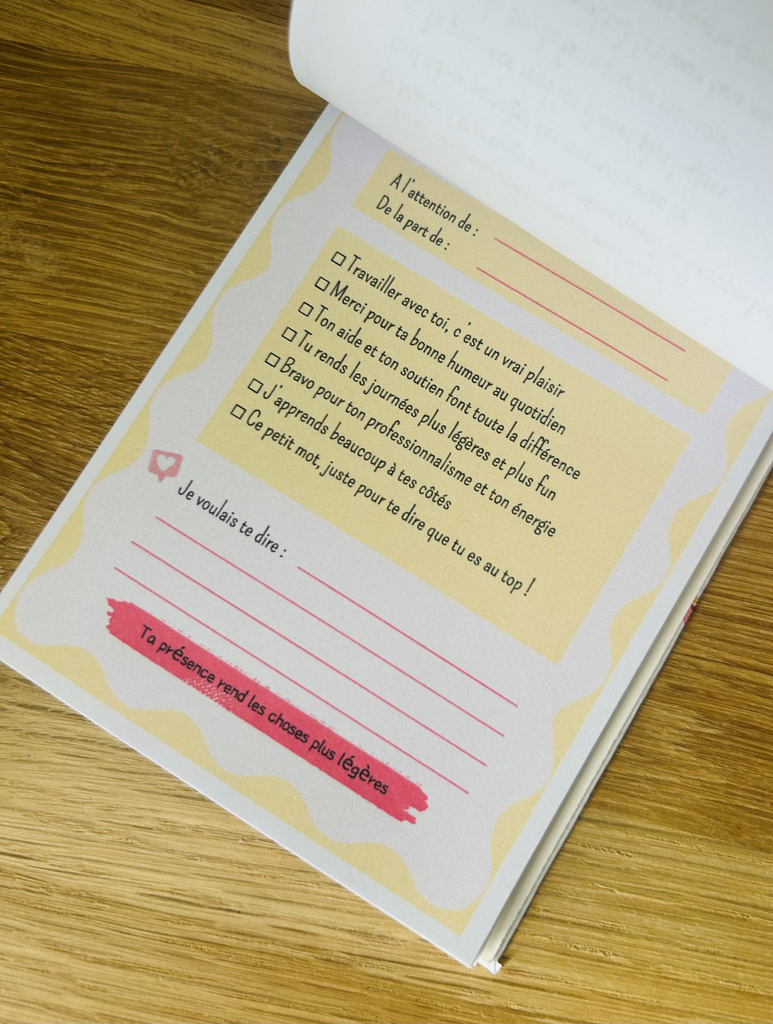 A l'attention de :
De la part de :
Travailler avec toi, c'est un vrai plaisir
Merci pour ta bonne humeur au quotidien
Ton aide et ton soutien font toute la différence
Tu rends les journées plus légères et plus fun
Bravo pour ton professionnalisme et ton énergie
J'apprends beaucoup à tes côtés
Ce petit mot, juste pour te dire que tu es au top !
Je voulais te dire :
Ta présence rend les choses plus légères